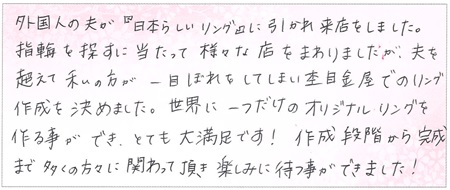 外国人の夫が『日本らしいリング』に引かれ来店をしました。
指輪を探すに当たって様々な店をまわりましたが、夫を
超えて私の方が一目ぼれをしてしまい杢目金屋でのリング
作成を決めました。世界に一つだけのオリジナルリングを
作る事ができ、とても大満足です! 作成段階から完成
まで多くの方々に関わって頂き楽しみに待つ事ができました!